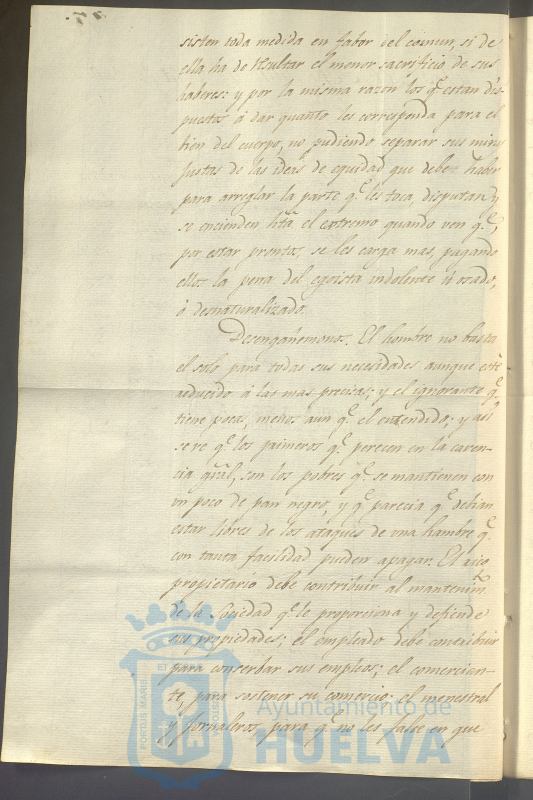 sisten toda medida en fabor del comun, si de
ella ha de resultar el menor sacrificio de sus
haberes: y por la misma razon los q.e estan dis-
puestos á dar quanto les corresponda para el
bien del cuerpo, no pudiendo separar sus miras
justas de las ideas de equidad que deben haber
para arreglar la parte q.e les toca, disputan y
se encienden hta el extremo quando ven q.e,
por estar prontos, se les carga mas, pagando
ellos la pena del egoista indolente ú osado,
ó desnaturalizado.
Desengañemonos. El hombre no basta
el solo para todas sus necesidades aunque esté
reducido á las mas precisas; y el ignorante q.e
tiene pocas, menos aun q.e el entendido; y asi
se ve q.e los primeros q.e perecen en la caren-
cia gral, son los pobres q.e se mantienen con
un poco de pan negro, y q.e parecia q.e debian
estar libres de los ataques de una hambre q.e
con tanta facilidad pueden apagar. El rico
propietario debe contribuir al mantenim.
de la Sociedad q.e le proporciona y defiende
sus propiedades; el empleado debe contribuir
para conserbar sus empleos; el comercian-
te, para sostener su comercio; el menestral
y jornaleros para q.e no les falte en que
Ayuntamiento de
HUELVA
PORTUS MARIS